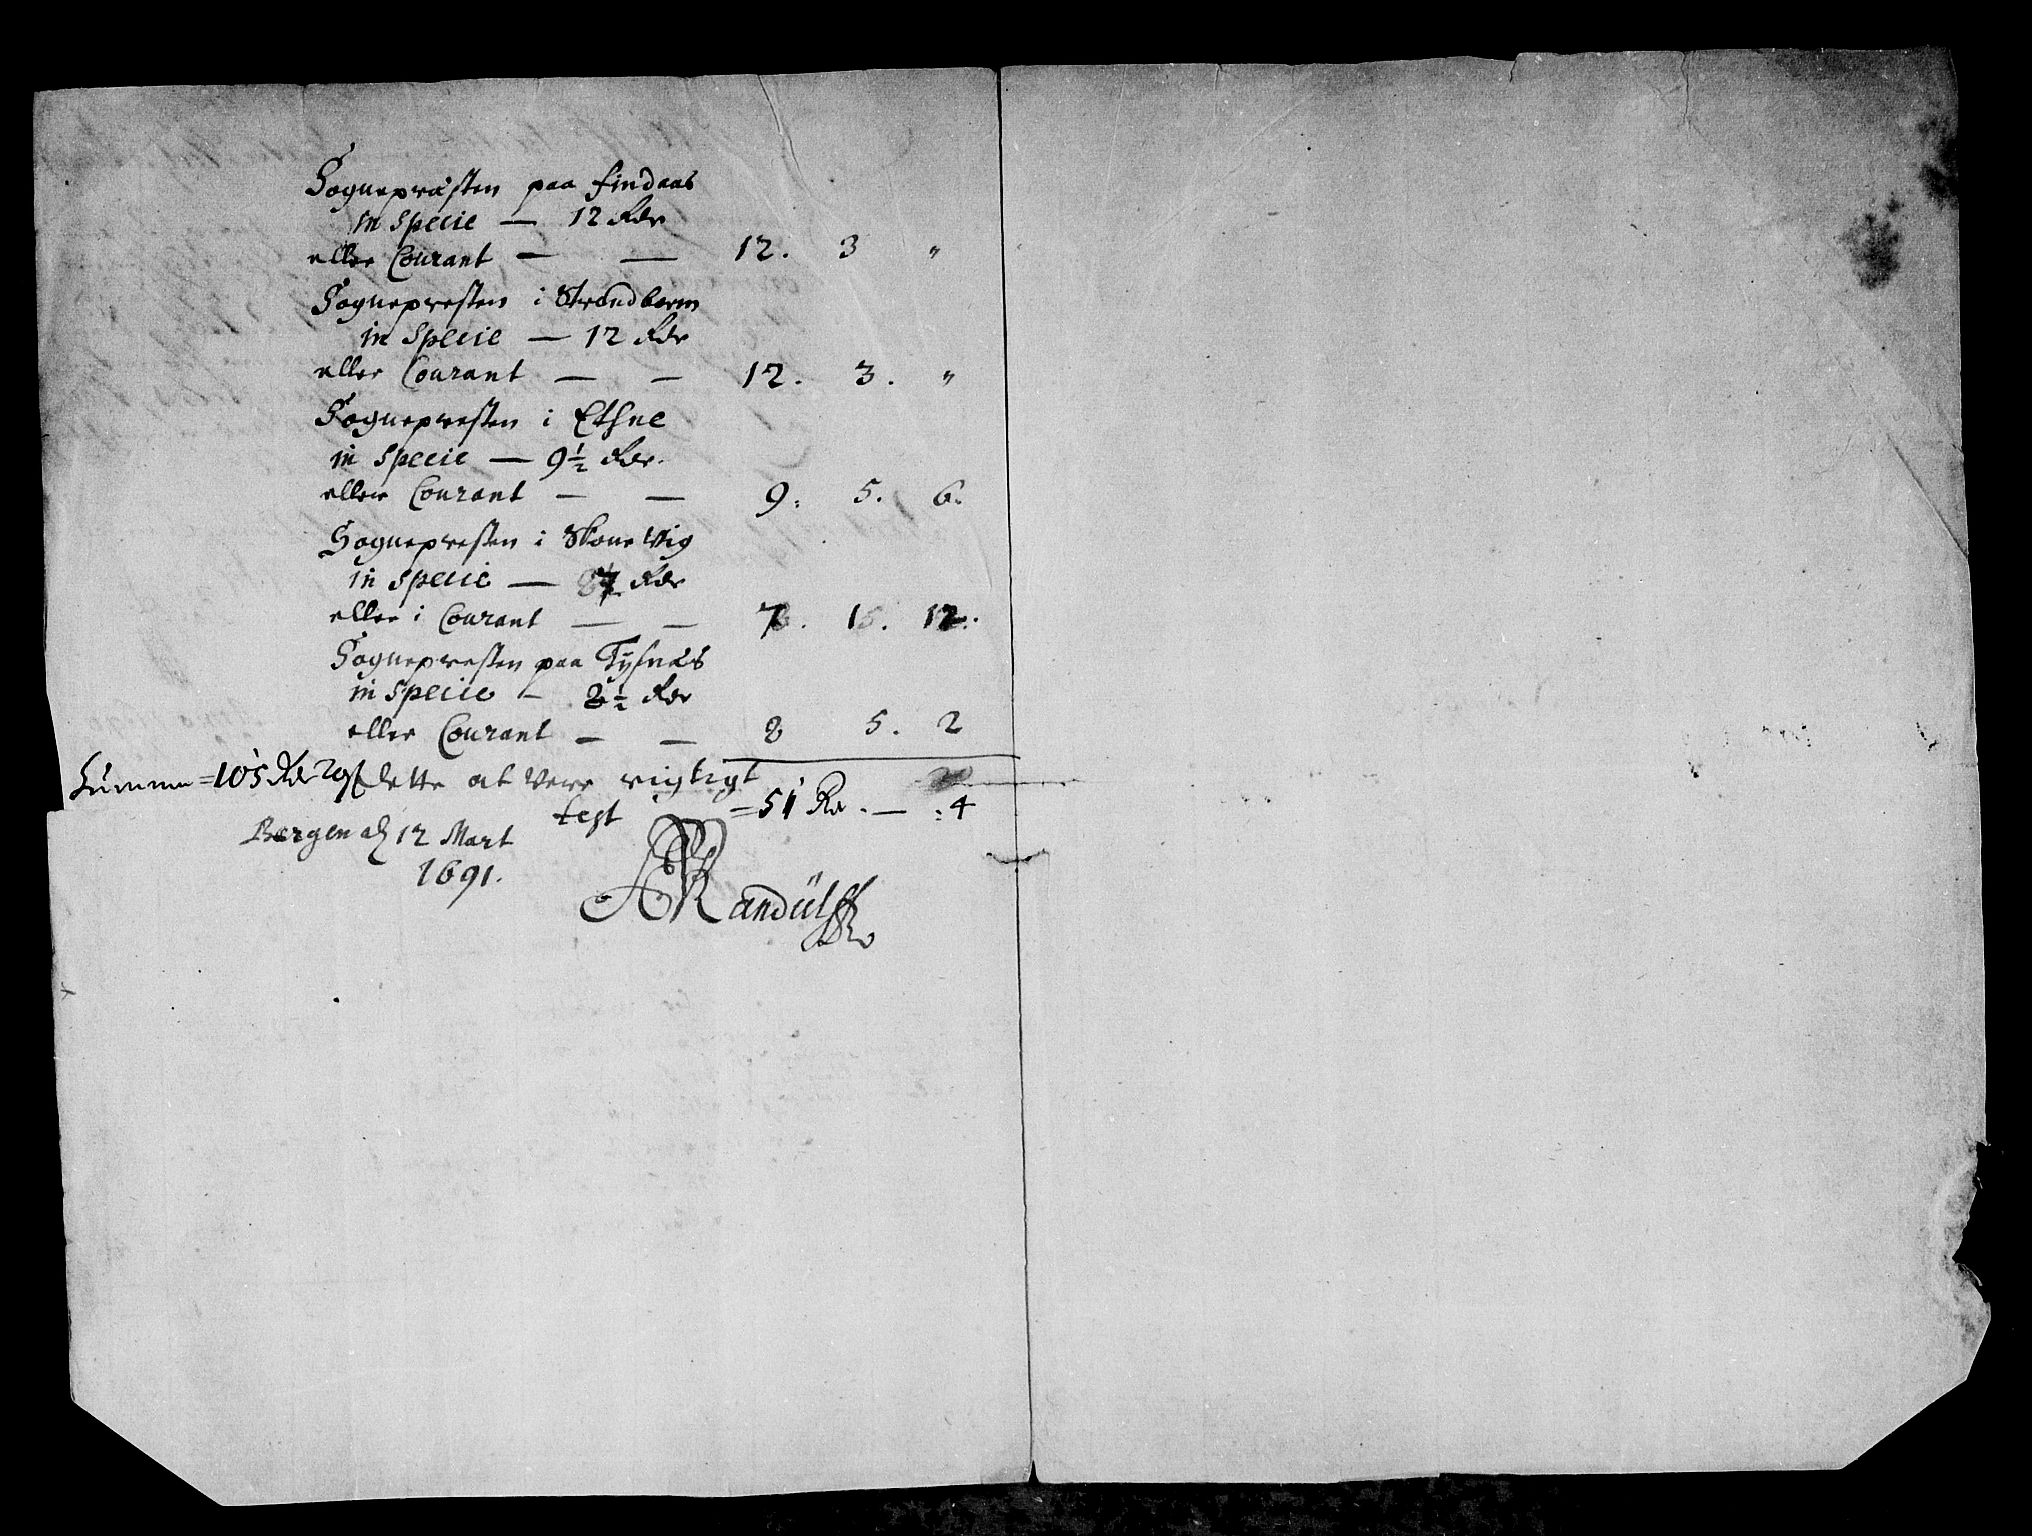 Sognepræsten paa findaas
in Specie — 12 Rdr
eller Courant — — 12. 3 "
Sognepresten i Strandbarm
in Specie — 12 Rdr
eller Courant — — 12. 3. "
Sognepresten i Ethne
in Specie — 9½ Rdr.
eller Courant — — 9: 5. 6.
Sognepresten i SkoneVig
in Specie — 7 Rdr
eller i Courant — — 7. 1. 12.
Sognepresten paa Tysnæs
in Specie — 8½ Rdr
eller Courant — — 8 5. 2
Summa = 105 Rdr dette at vere rigtigt
test = 51 Rdr. — : 4
Bergen d 12 Mart
1691.
Randülff